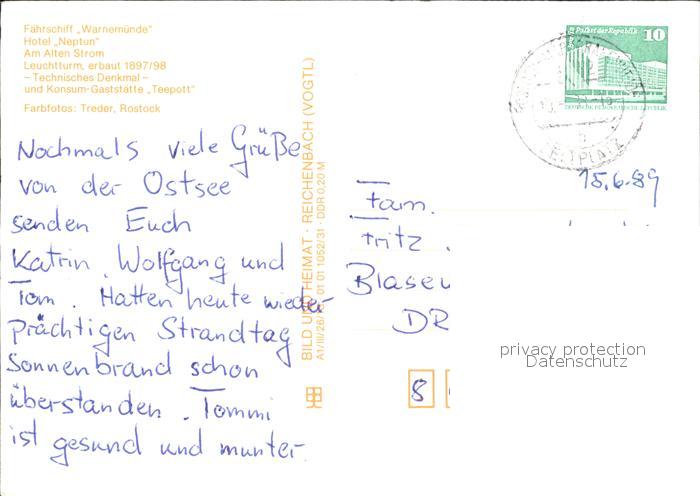 Fährschiff „Warnemünde“
Hotel „Neptun“
Am Alten Strom
Leuchtturm, erbaut 1897/98
– Technisches Denkmal –
und Konsum-Gaststätte „Teepott“
Farbfotos: Treder, Rostock
Nochmals viele Grüße
von der Ostsee
senden Euch
Katrin, Wolfgang und
Tom. Hatten heute wieder
prächtigen Strandtag
Sonnenbrand schon
überstanden. Tommi
ist gesund und munter.
BILD UND HEIMAT · REICHENBACH (VOGTL)
A1/III/26/13 01 01 1052/31 · DDR 0,20 M
Palast der Republik
10
DEUTSCHE DEMOKRATISCHE REPUBLIK
ZELTPLATZ
15.6.89
Fam.
Fritz
Blasew
DR
8
privacy protection
Datenschutz